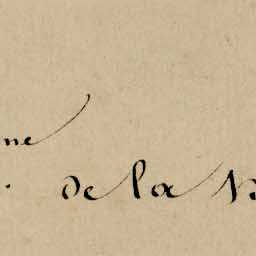 ne
de la